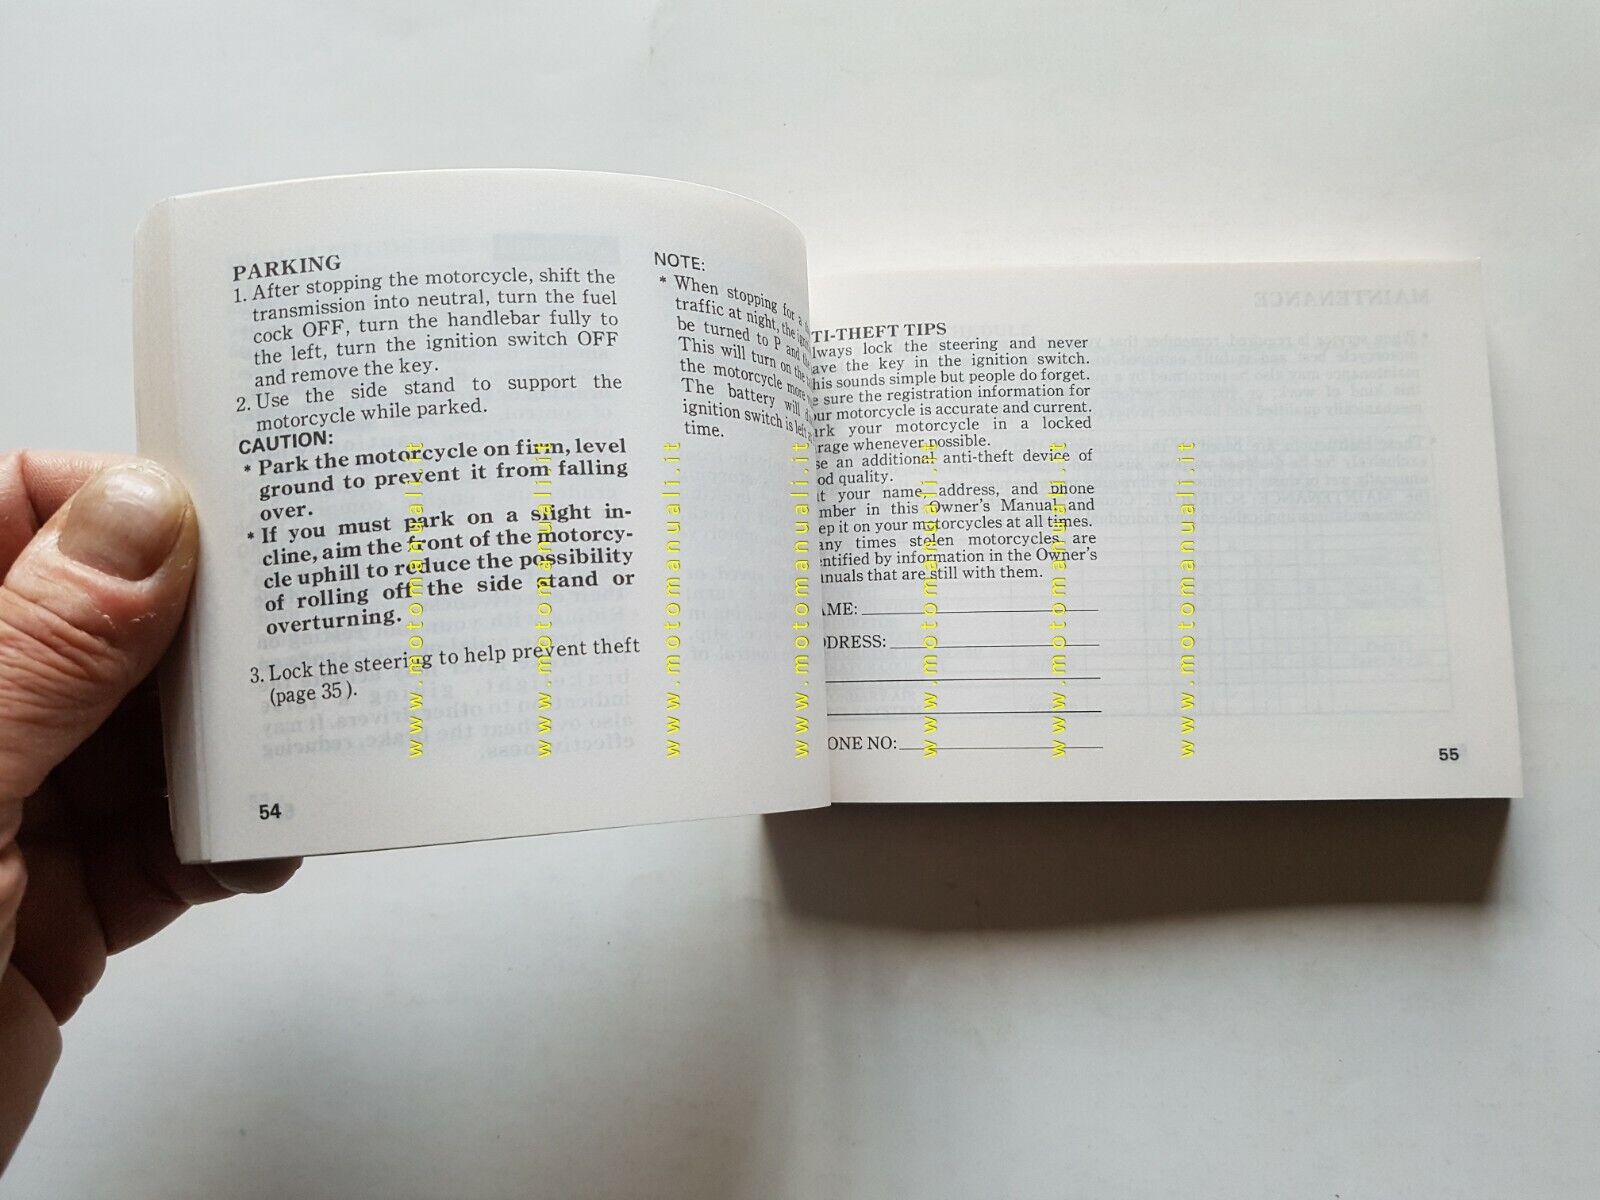 PARKING
1. After stopping the motorcycle, shift the
transmission into neutral, turn the fuel
cock OFF, turn the handlebar fully to
the left, turn the ignition switch OFF
and remove the key.
2. Use the side stand to support the
motorcycle while parked.
CAUTION:
* Park the motorcycle on firm, level
ground to prevent it from falling
over.
* If you must park on a slight in-
cline, aim the front of the motorcy-
cle uphill to reduce the possibility
of rolling off the side stand or
overturning.
3. Lock the steering to help prevent theft
(page 35).
54
NOTE:
* When stopping for a
traffic at night, the
be turned to P and
This will turn on the
the motorcycle more
The battery will
ignition switch is left
time.
TI-THEFT TIPS
lways lock the steering and never
ave the key in the ignition switch.
his sounds simple but people do forget.
e sure the registration information for
ur motorcycle is accurate and current.
rk your motorcycle in a locked
rage whenever possible.
se an additional anti-theft device of
od quality.
t your name, address, and phone
mber in this Owner's Manual and
ep it on your motorcycles at all times.
any times stolen motorcycles are
entified by information in the Owner's
nuals that are still with them.
AME:
DRESS:
ONE NO:
55
www.motomanuali.it
www.motomanuali.it
www.motomanuali.it
www.motomanuali.it
www.motomanuali.it
www.motomanuali.it
www.motomanuali.it